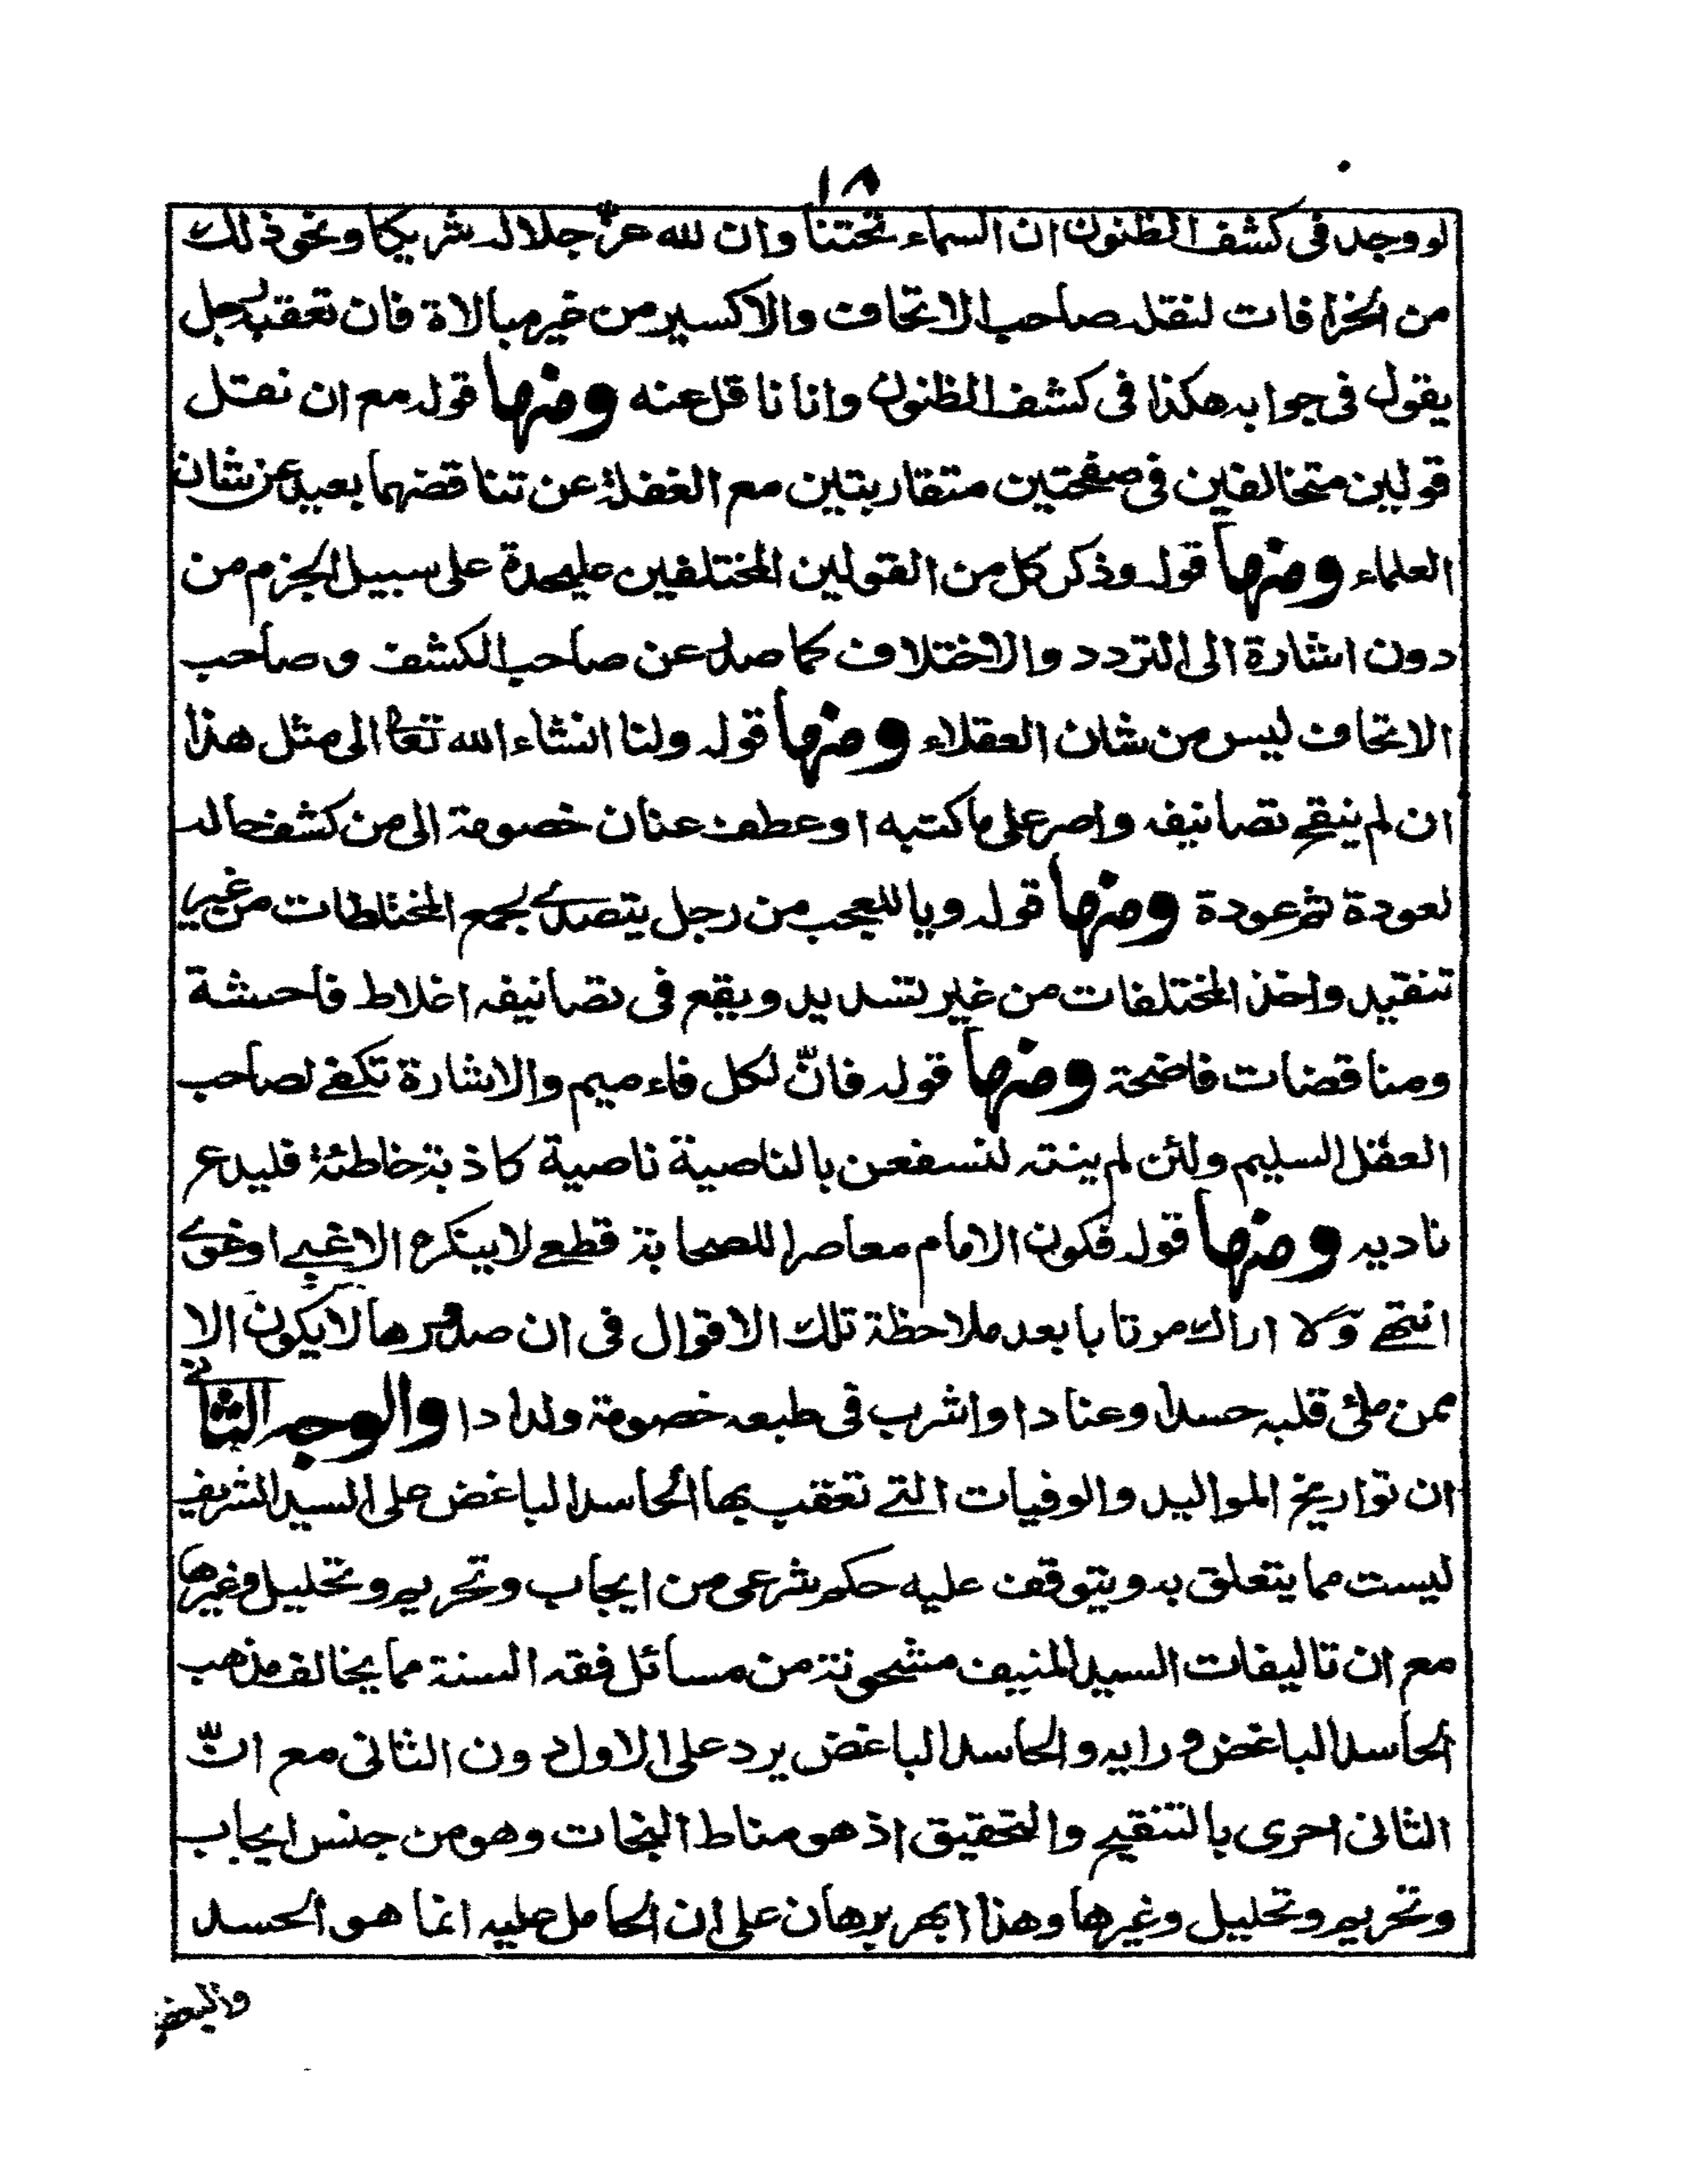 ١٨
لو وجد فى كشف الظنون ان السماء تحتنا وان لله عزّ جلاله شريكا ونحو ذلك
من الخرافات لنقله صاحب الاتحاف والاكسير من غير مبالاة فان تعقبه رجل
يقول فى جوابه هكذا فى كشف الظنون وانا ناقل عنه ومنها قوله مع ان نقل
قولين متخالفين فى صفحتين متقاربتين مع الغفلة عن تناقضهما بعيد عن شان
العلماء ومنها قوله وذكر كل من القولين المختلفين عليحدة على سبيل الجزم من
دون اشارة الى التردد والاختلاف كما صدر عن صاحب الكشف وصاحب
الاتحاف ليس من شان العقلاء ومنها قوله ولنا انشاء الله تعا الى مثل هذا
ان لم ينقح تصانيفه واصر على ما كتبه او عطف عنان خصومة الى من كشف حاله
لعودة ثم عودة ومنها قوله ويا للعجب من رجل يتصدى لجمع المختلطات من غير
تنقيد واخذ المختلفات من غير تسديد ويقع فى تصانيفه اغلاط فاحشة
ومناقضات فاضحة ومنها قوله فانّ لكل فاء ميم والاشارة تكفے لصاحب
العقل السليم ولئن لم ينته لنسفعن بالناصية ناصية كاذبة خاطئة فليدع
ناديه ومنها قوله فكون الامام معاصرا للصحابة قطعے لا ينكره الا غبے او غوى
انتهے ولا اراك مرتابا بعد ملاحظة تلك الاقوال فى ان صدورها لا يكون الا
ممن ملئ قلبه حسدا وعنادا واشرب فى طبعه خصومة ولدادا والوجه الثانے
ان تواريخ المواليد والوفيات التے تعقب بها الحاسد الباغض على السيد الشريف
ليست مما يتعلق به ويتوقف عليه حكم شرعى من ايجاب وتحريم وتحليل وغيرها
مع ان تاليفات السيد المنيف مشحونة من مسائل فقه السنة مما يخالف مذهب
الحاسد الباغض ورايه والحاسد الباغض يرد على الاول دون الثانى مع انّ
الثانى احرى بالتنقيح والتحقيق اذ هو مناط النجات وهو من جنس ايجاب
وتحريم وتحليل وغيرها وهذا ابهر برهان على ان الحامل عليه انما هو الحسد
والبغض